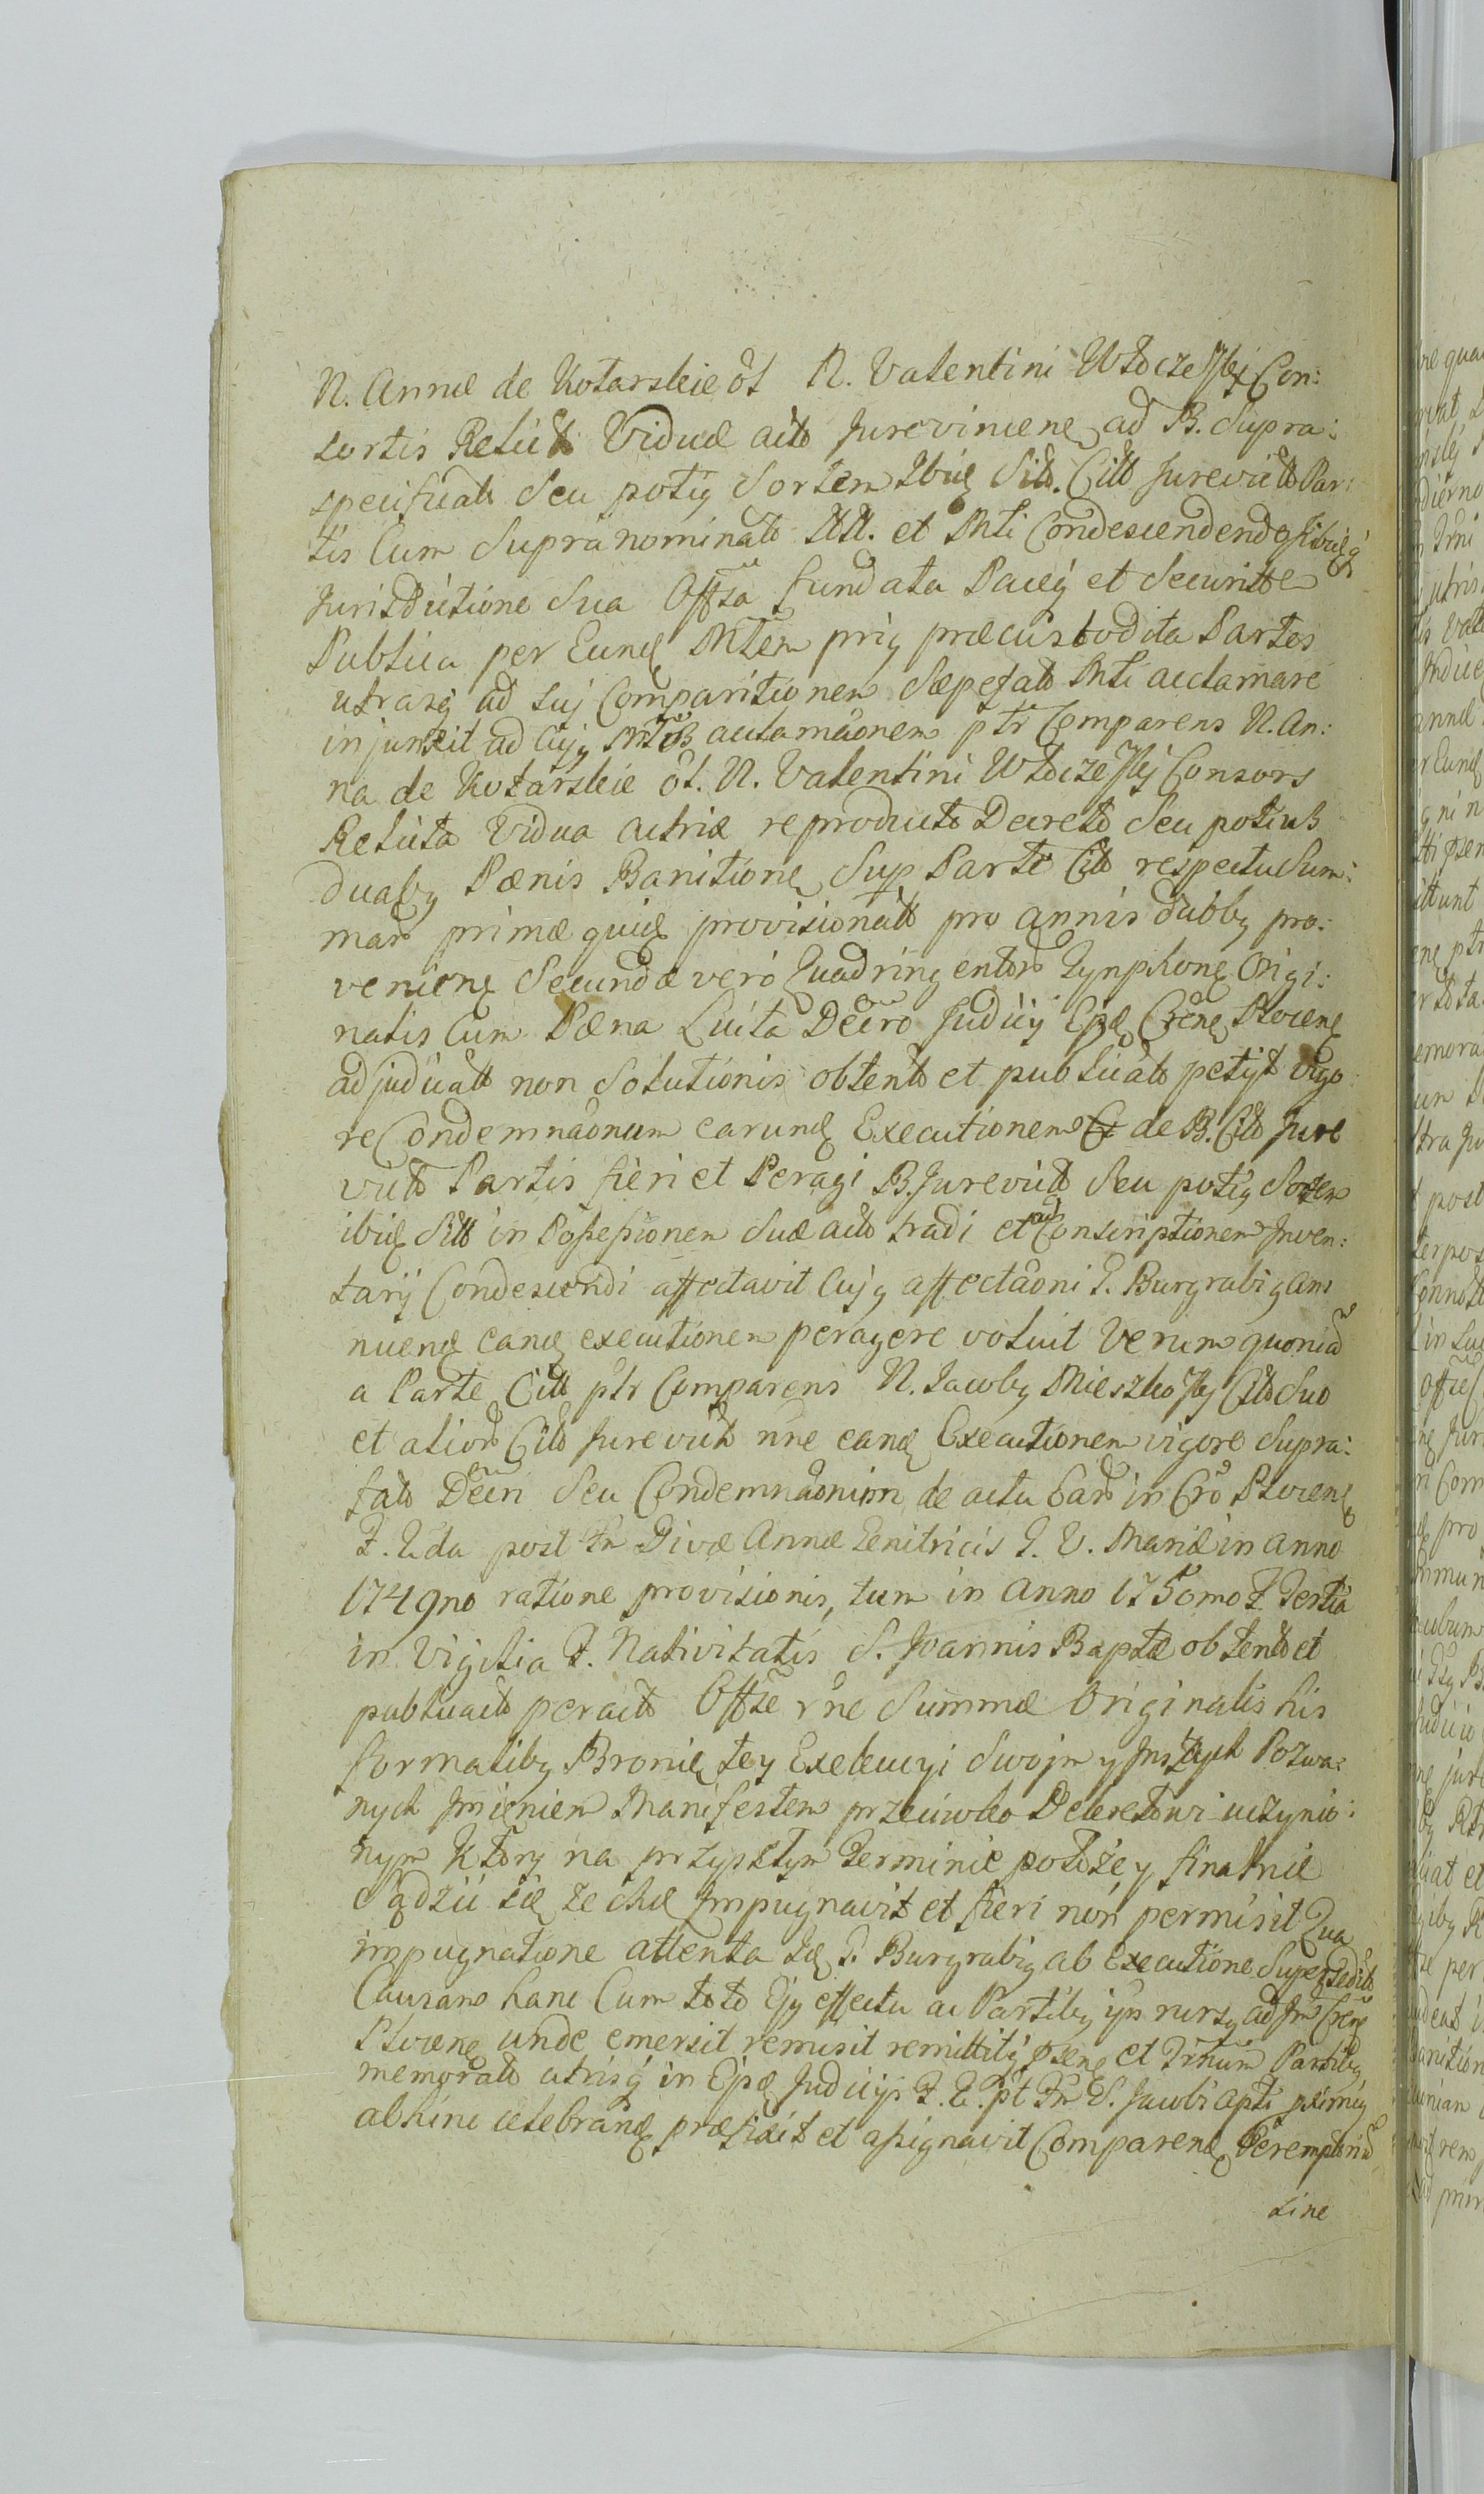 N. Annæ de Kotarskie ol. N. Valentini Włoczeskj Con:
sortis Relictæ Viduæ actō Jurevincenę ad B. Supra:
specificati Seu potiq Sortem Ibidę Sitō. Citō Jurevictō Par:
tis Cum Supranominatō NN. et Mnti Condescendendo Ibidęq
Jurisdictione Sua Offsa fundata Paceq et Securitte
Publica per Eundę Mntem priq præcustodita Partes
utrasq ad sui Comparitionem Sæpefatō Mnti acclamare
injunxit ad Cujq Mntis acclamãonem ptr Comparens N. An:
na de Kotarskie ol. N. Valentini Włoczeskj Consors
Relicta Vidua actrix reproductō Decretō Seu potius
duabq Pænis Banitionę Sup Parte Citō respectu Sum:
marō primæ quidę provisionalō pro annis duobq pro:
venienę Secundæ vero Quadringentorō Tynphonę Origi:
nalis Cum Pæna Luita Decro Judicij Ejdę Crenę Plocenę
adjudicatō non Solutionis obtentō et publicatō petijt vigo:
re Condemnãonum earundę Executionem de B. Citō Jure
victō Partis fieri et Peragi B. Jurevictō Seu potiq Sortem
ibidę Sitō in Possessionem Suæ actō tradi et ad Conscriptionem Inven:
tarij Condescendi affectavit Cujq affectãoni G. Burgrabiq an:
nuendę eandę executionem peragere voluit Verum quoniã
a Parte Citō ptr Comparens N. Jacobq Mieszkoskj Citō Suo
et aliorō Citō Jurevictō nne eandę Executionem vigore Supra:
fatō Decri Seu Condemnãonum de actu earō in Crō Plocenę
F. 2da post Fm Divæ Annæ Genitricis G. V. Mariæ in anno
1749no ratione provisionis, tum in Anno 1750mo F. Tertia
in Vigilia F. Nativitatis S. Joannis Baptæ obtentō et
publicatō peractō Offse rne Summæ Originalis his
formalibq Bronię tey Exekucyi Swojm y Jnszych Pozwa:
nych Jmieniem Manifestem przeciwko Dekretowi uczynio:
nym Ktory na przyszłym Terminie położę y finalnie
Sądzić się ze chcę Impugnavit et fieri non permisit Qua
impugnatione attenta Idę G. Burgrabiq ab Executione Supersedit
Causam hanc Cum toto Ejq effectu ac Partibq ips rursq ad Jm Crenę
Plocenę unde emersit remisit remittitq psenę et Trnum Partibq
memoratō utrisq in Ejdę Judicijs F. 2. pt Fm S. Jacobi Apti primiq
abhinc celebrandę præfixit et assignavit Comparendę Peremptoriũ
sine